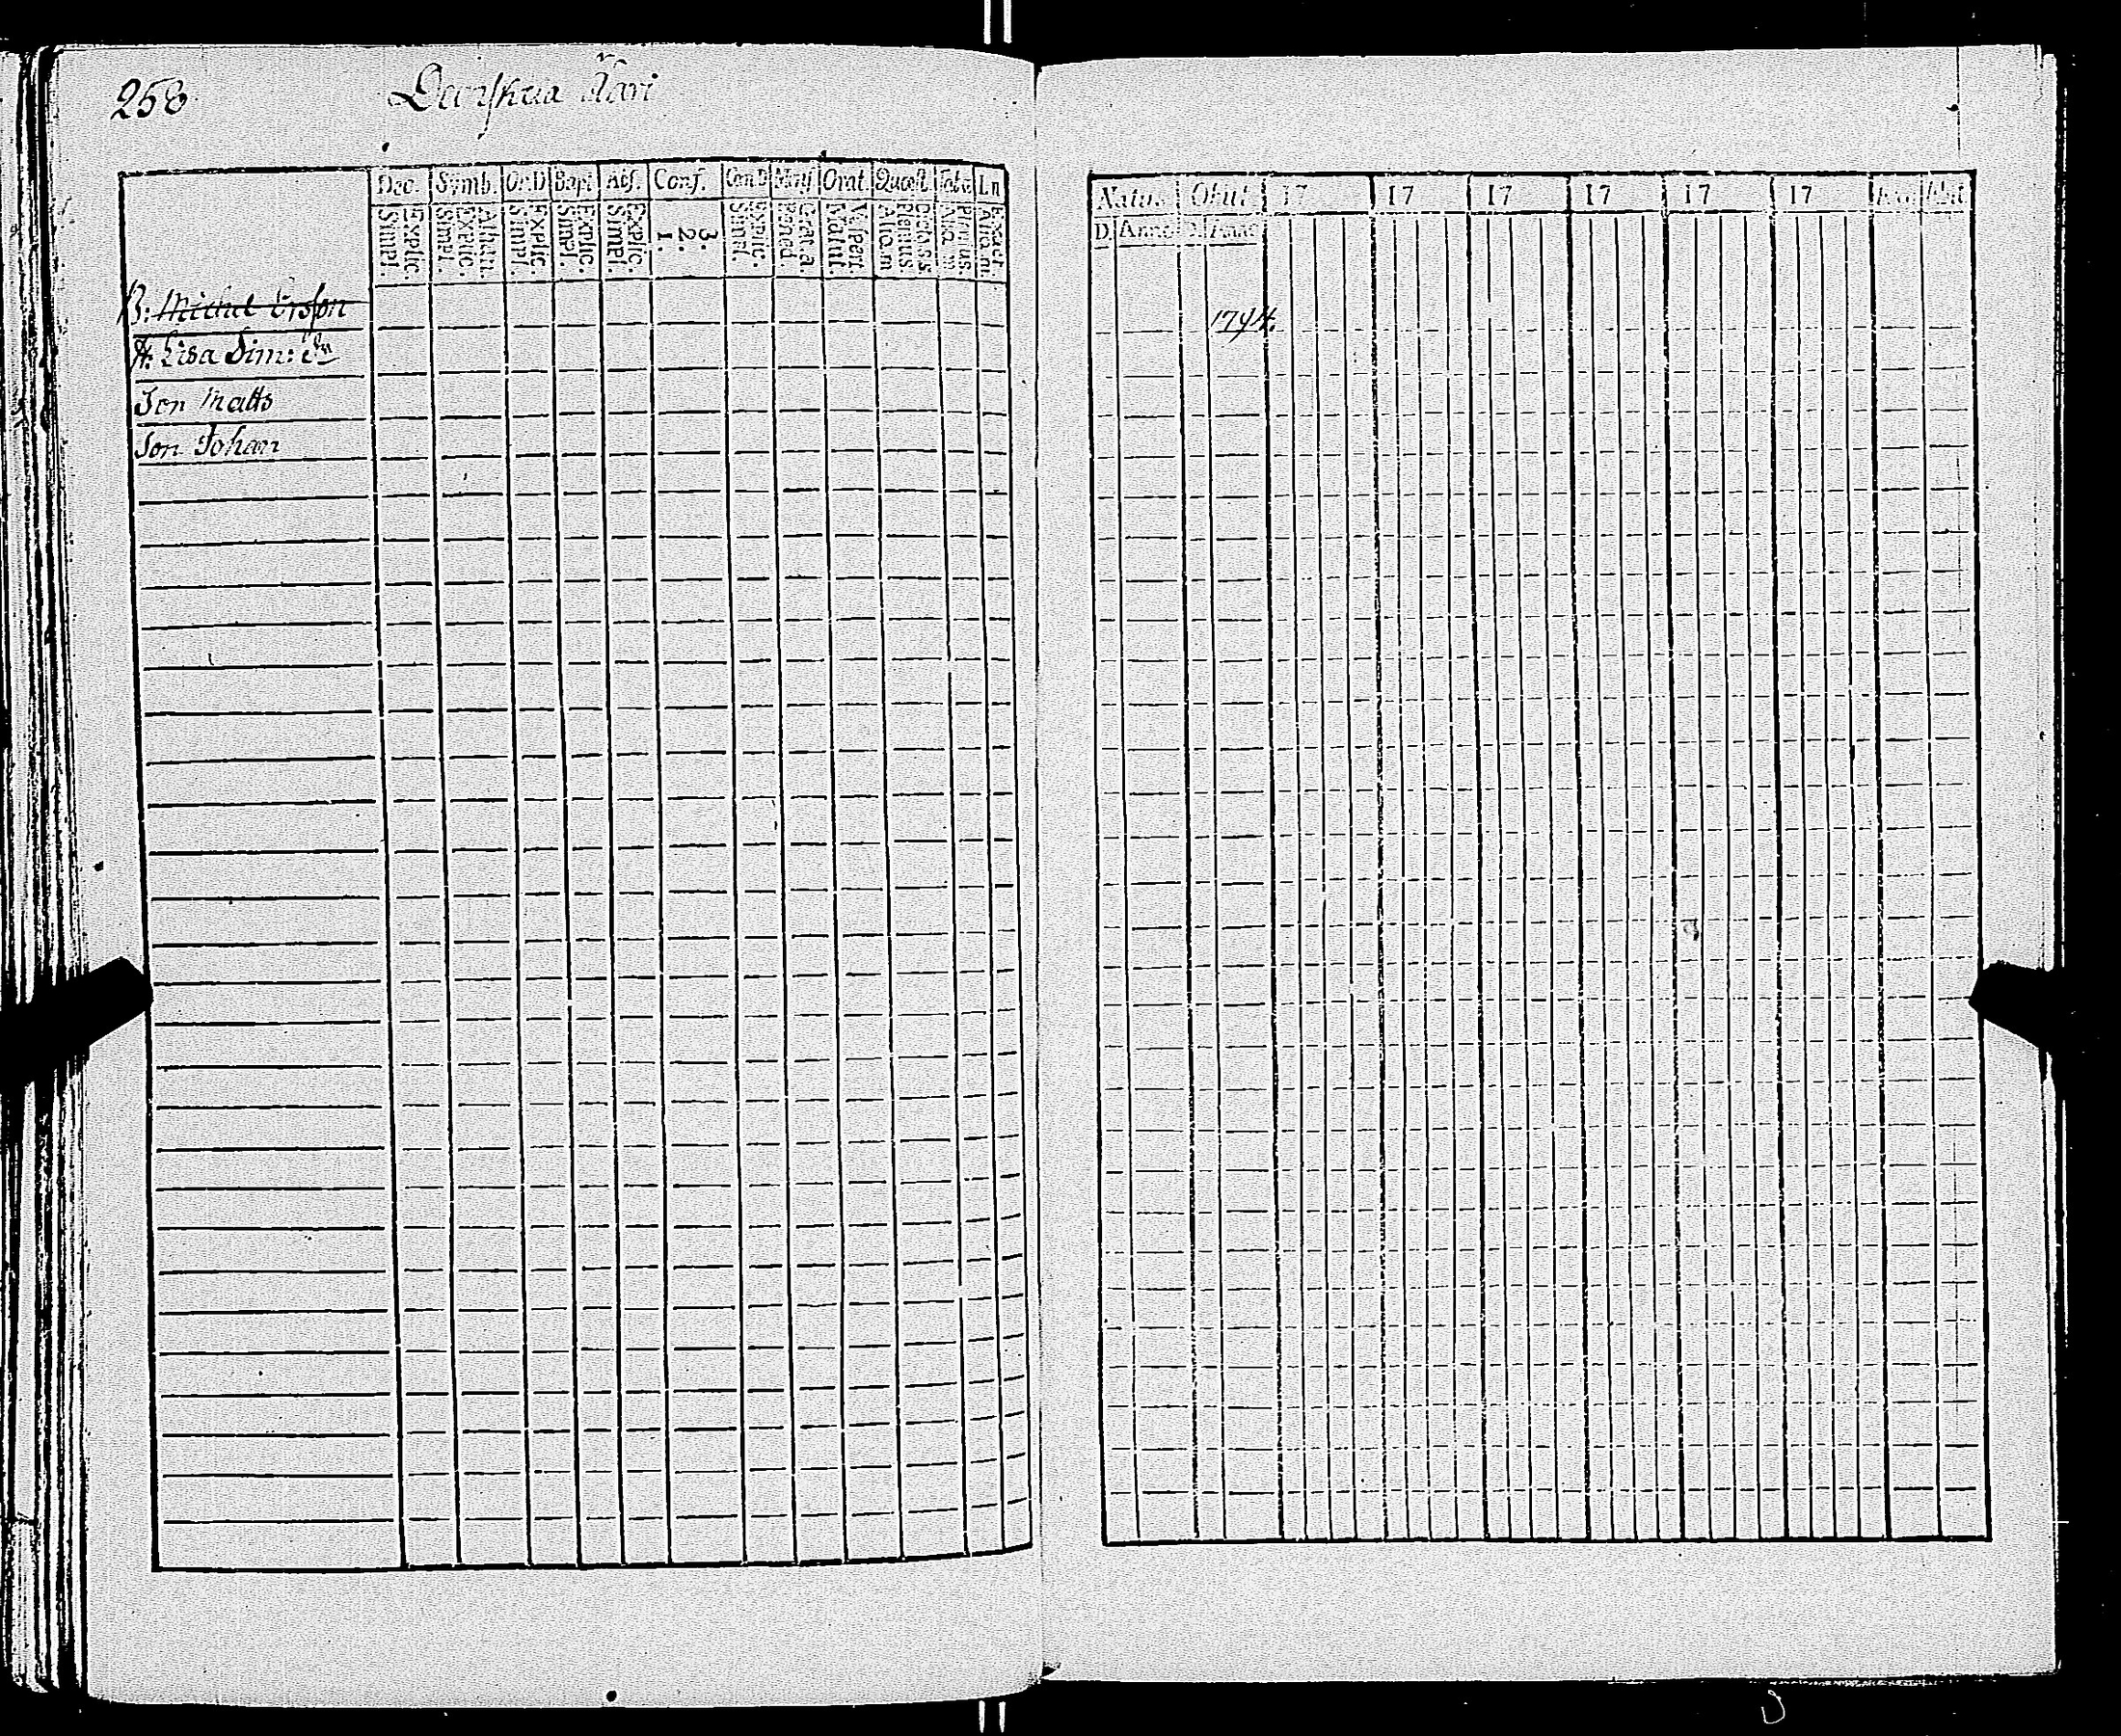 258
Dec. Symb. Or.D Bapt Abs. Conf. Orat. Quæst. Tabu
Simpl. Explic. Simpl. Explic. Athan. Simpl. Explic. Simpl. Explic. Simpl. Explic. 1. 2. 3. Simpl. Explic. Bened. Grat.a. Matut. Vespert. Aliq.m Plenius. Aliq.m. Plenius. Aliq.m. Exact.
B: Michel Ersson
H: Lisa Sim: Dr
Son Matts
Son Johan
Natus. Obiit. 17 17 17 17 17 17
D. Anno D. Anno
1794.